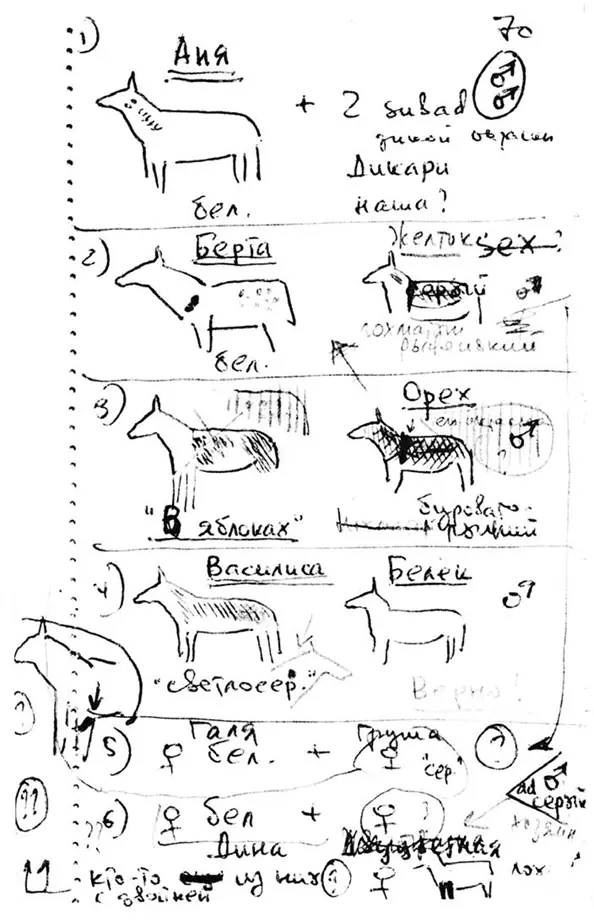 70
1)
Аня
+ 2 subad ♂♂
дикой окраски
Дикари
наша?
бел.
2)
Берта
Желток sex ?
серый ♂
лохматый
рыженький
бел.
3)
Орех
♂
?
"В яблоках"
буровато-
рыжий
4)
Василиса
Белек
♂
"светлосер."
Верно!
?
5)
Галя
Груша
♀ бел. + ♀ "сер." ?
ad ♂
серый
хозяин
??
6) ♀ бел + ♀ ?
??
Дина
кто-то из них ? ♀ лох.
с двойней